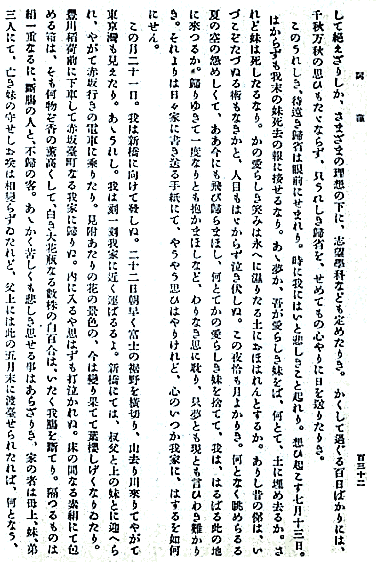 阿蘇
百三十二
して絶えざりしか、さまざまの理想の下に、志望學科なども定めたりき。かくして過ぐる百日ばかりには、
千秋万秋の思ひもたゞならず、只うれしき歸省を、せめてもの心やりに日を送りたりき。
このうれしき、待遠き歸省は眼前にせまれり。時に我にはいと悲しきこと起れり。想ひ起こす七月十三日。
はからずも我末の妹死去の報に接せるなり。あゝ夢か、吾が愛らしき妹をば、何とて、土に埋め去るか。さ
れど妹は死したるなり。かの愛らしき笑みは永へに濕りたる土におほはれんとするか。ありし昔の俤は、い
づこをたづぬる術もなきかと、人目もはゞからず泣き伏しぬ。この夜恰も月よかりき。何となく眺めらるる
夏の空の怨めしくて、ああ今にも飛び歸らまほし、何とてかの愛らしき妹を捨てて、我は、はるばる此の地
に來つるか。歸りゆきて一度なりとも抱かまほしなど、わりなき思に耽り、只夢とも現とも言ひわき難かり
き。それよりは日々家に書き送る手紙にて、やうやう思ひはやりけれど、心のいつか我家に、はするを如何
にせん。
この月二十一日。我は新橋に向けて發しぬ。二十二日朝早く富士の裾野を横切り、山去り川來りてやがて
東京灣も見えたり。あゝうれし。我は刻一刻我家に近く運ばるるよ。新橋にては、叔父と上の妹とに迎へら
れ、やがて赤坂行きの電車に乘りたり。見附あたりの花の景色の、今は變り果てて葉櫻しげくなりゐたり。
豊川稻荷前に下車して赤坂臺町なる我家に歸りぬ。内に入るや想はずも打泣かれぬ。床の間なる素絹にて包
める箱は、そも何物ぞ香の薫高くして、白き大花瓶なる數株の白百合は、いたく我膓を斷てり。隔つるものは
絹一重なるに、斷膓の人と、不歸の客。あゝかく苦しくも悲しき思せる事はあらざりき、家の者は母上、妹、弟
三人にて、亡き妹の守せし女は相變らずゐたれど、父上には此の五月末に渡臺せられたれば、何となう、